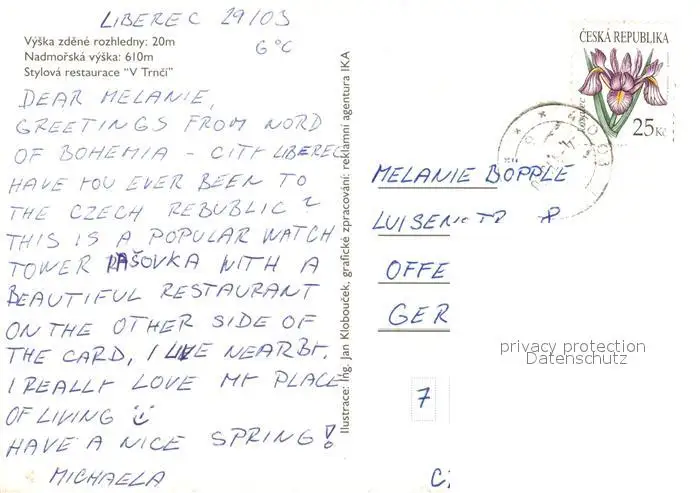 LIBEREC 29/03
6°C
Výška zděné rozhledny: 20m
Nadmořská výška: 610m
Stylová restaurace "V Trnčí"
DEAR MELANIE,
GREETINGS FROM NORD
OF BOHEMIA - CITY LIBEREC
HAVE YOU EVER BEEN TO
THE CZECH REBUBLIC?
THIS IS A POPULAR WATCH
TOWER RAŠOVKA WITH A
BEAUTIFUL RESTAURANT
ON THE OTHER SIDE OF
THE CARD, I LIVE NEARBY.
I REALLY LOVE MY PLACE
OF LIVING
HAVE A NICE SPRING!
MICHAELA
Ilustrace: Ing. Jan Klobouček, grafické zpracování: reklamní agentura IKA
ČESKÁ REPUBLIKA
Kosatec
25 Kč
MELANIE BOPPLE
OFFE
GER
7
privacy protection
Datenschutz